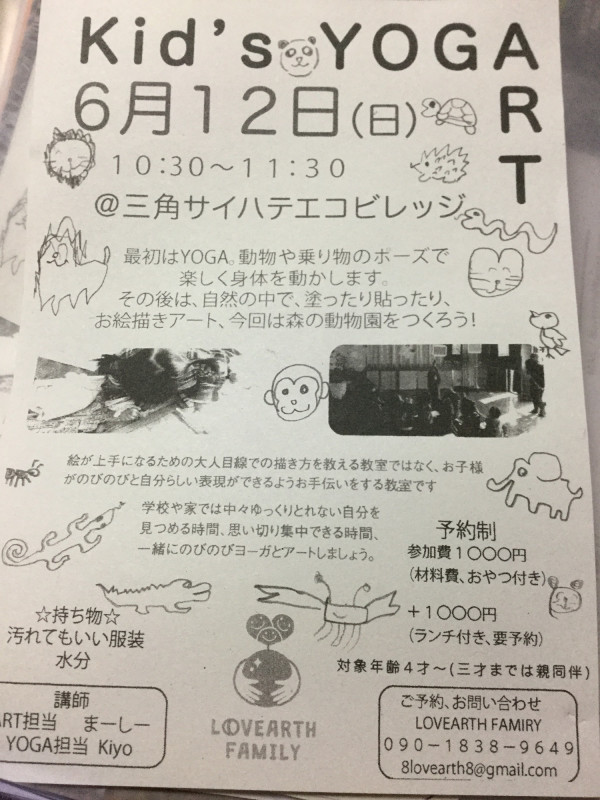 Kid's YOGA
ART
6月12日(日)
10:30〜11:30
@三角サイハテエコビレッジ
最初はYOGA。動物や乗り物のポーズで
楽しく身体を動かします。
その後は、自然の中で、塗ったり貼ったり、
お絵描きアート、今回は森の動物園をつくろう!
絵が上手になるための大人目線での描き方を教える教室ではなく、お子様
がのびのびと自分らしい表現ができるようお手伝いをする教室です
学校や家では中々ゆっくりとれない自分を
見つめる時間、思い切り集中できる時間、
一緒にのびのびヨーガとアートしましょう。
予約制
参加費1000円
(材料費、おやつ付き)
+1000円
(ランチ付き、要予約)
対象年齢4才〜(三才までは親同伴)
☆持ち物☆
汚れてもいい服装
水分
講師
ART担当 まーしー
YOGA担当 Kiyo
LOVEARTH
FAMILY
ご予約、お問い合わせ
LOVEARTH FAMIRY
090-1838-9649
8lovearth8@gmail.com